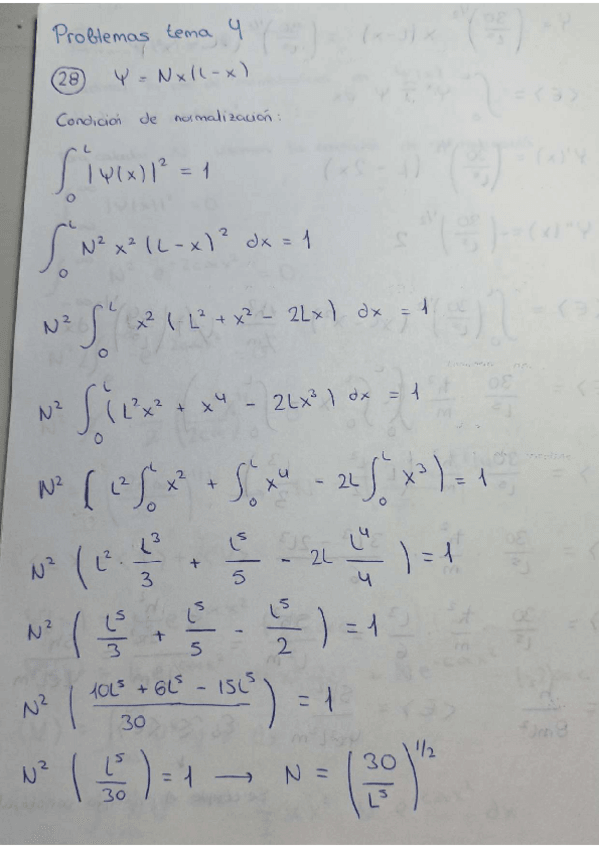 Problemas tema 4
28 Ψ = Nx(L-x)
Condición de normalización:
∫₀ᴸ |Ψ(x)|² = 1
∫₀ᴸ N² x² (L-x)² dx = 1
N² ∫₀ᴸ x² (L² + x² - 2Lx) dx = 1
N² ∫₀ᴸ (L²x² + x⁴ - 2Lx³) dx = 1
N² ( L² ∫₀ᴸ x² + ∫₀ᴸ x⁴ - 2L ∫₀ᴸ x³ ) = 1
N² ( L² · L³/3 + L⁵/5 - 2L L⁴/4 ) = 1
N² ( L⁵/3 + L⁵/5 - L⁵/2 ) = 1
N² ( (10L⁵ + 6L⁵ - 15L⁵)/30 ) = 1
N² ( L⁵/30 ) = 1 → N = ( 30/L⁵ )^1/2